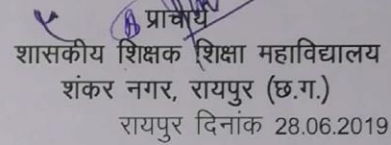 प्राचार्य
शासकीय शिक्षक शिक्षा महाविद्यालय
शंकर नगर, रायपुर (छ.ग.)
रायपुर दिनांक 28.06.2019